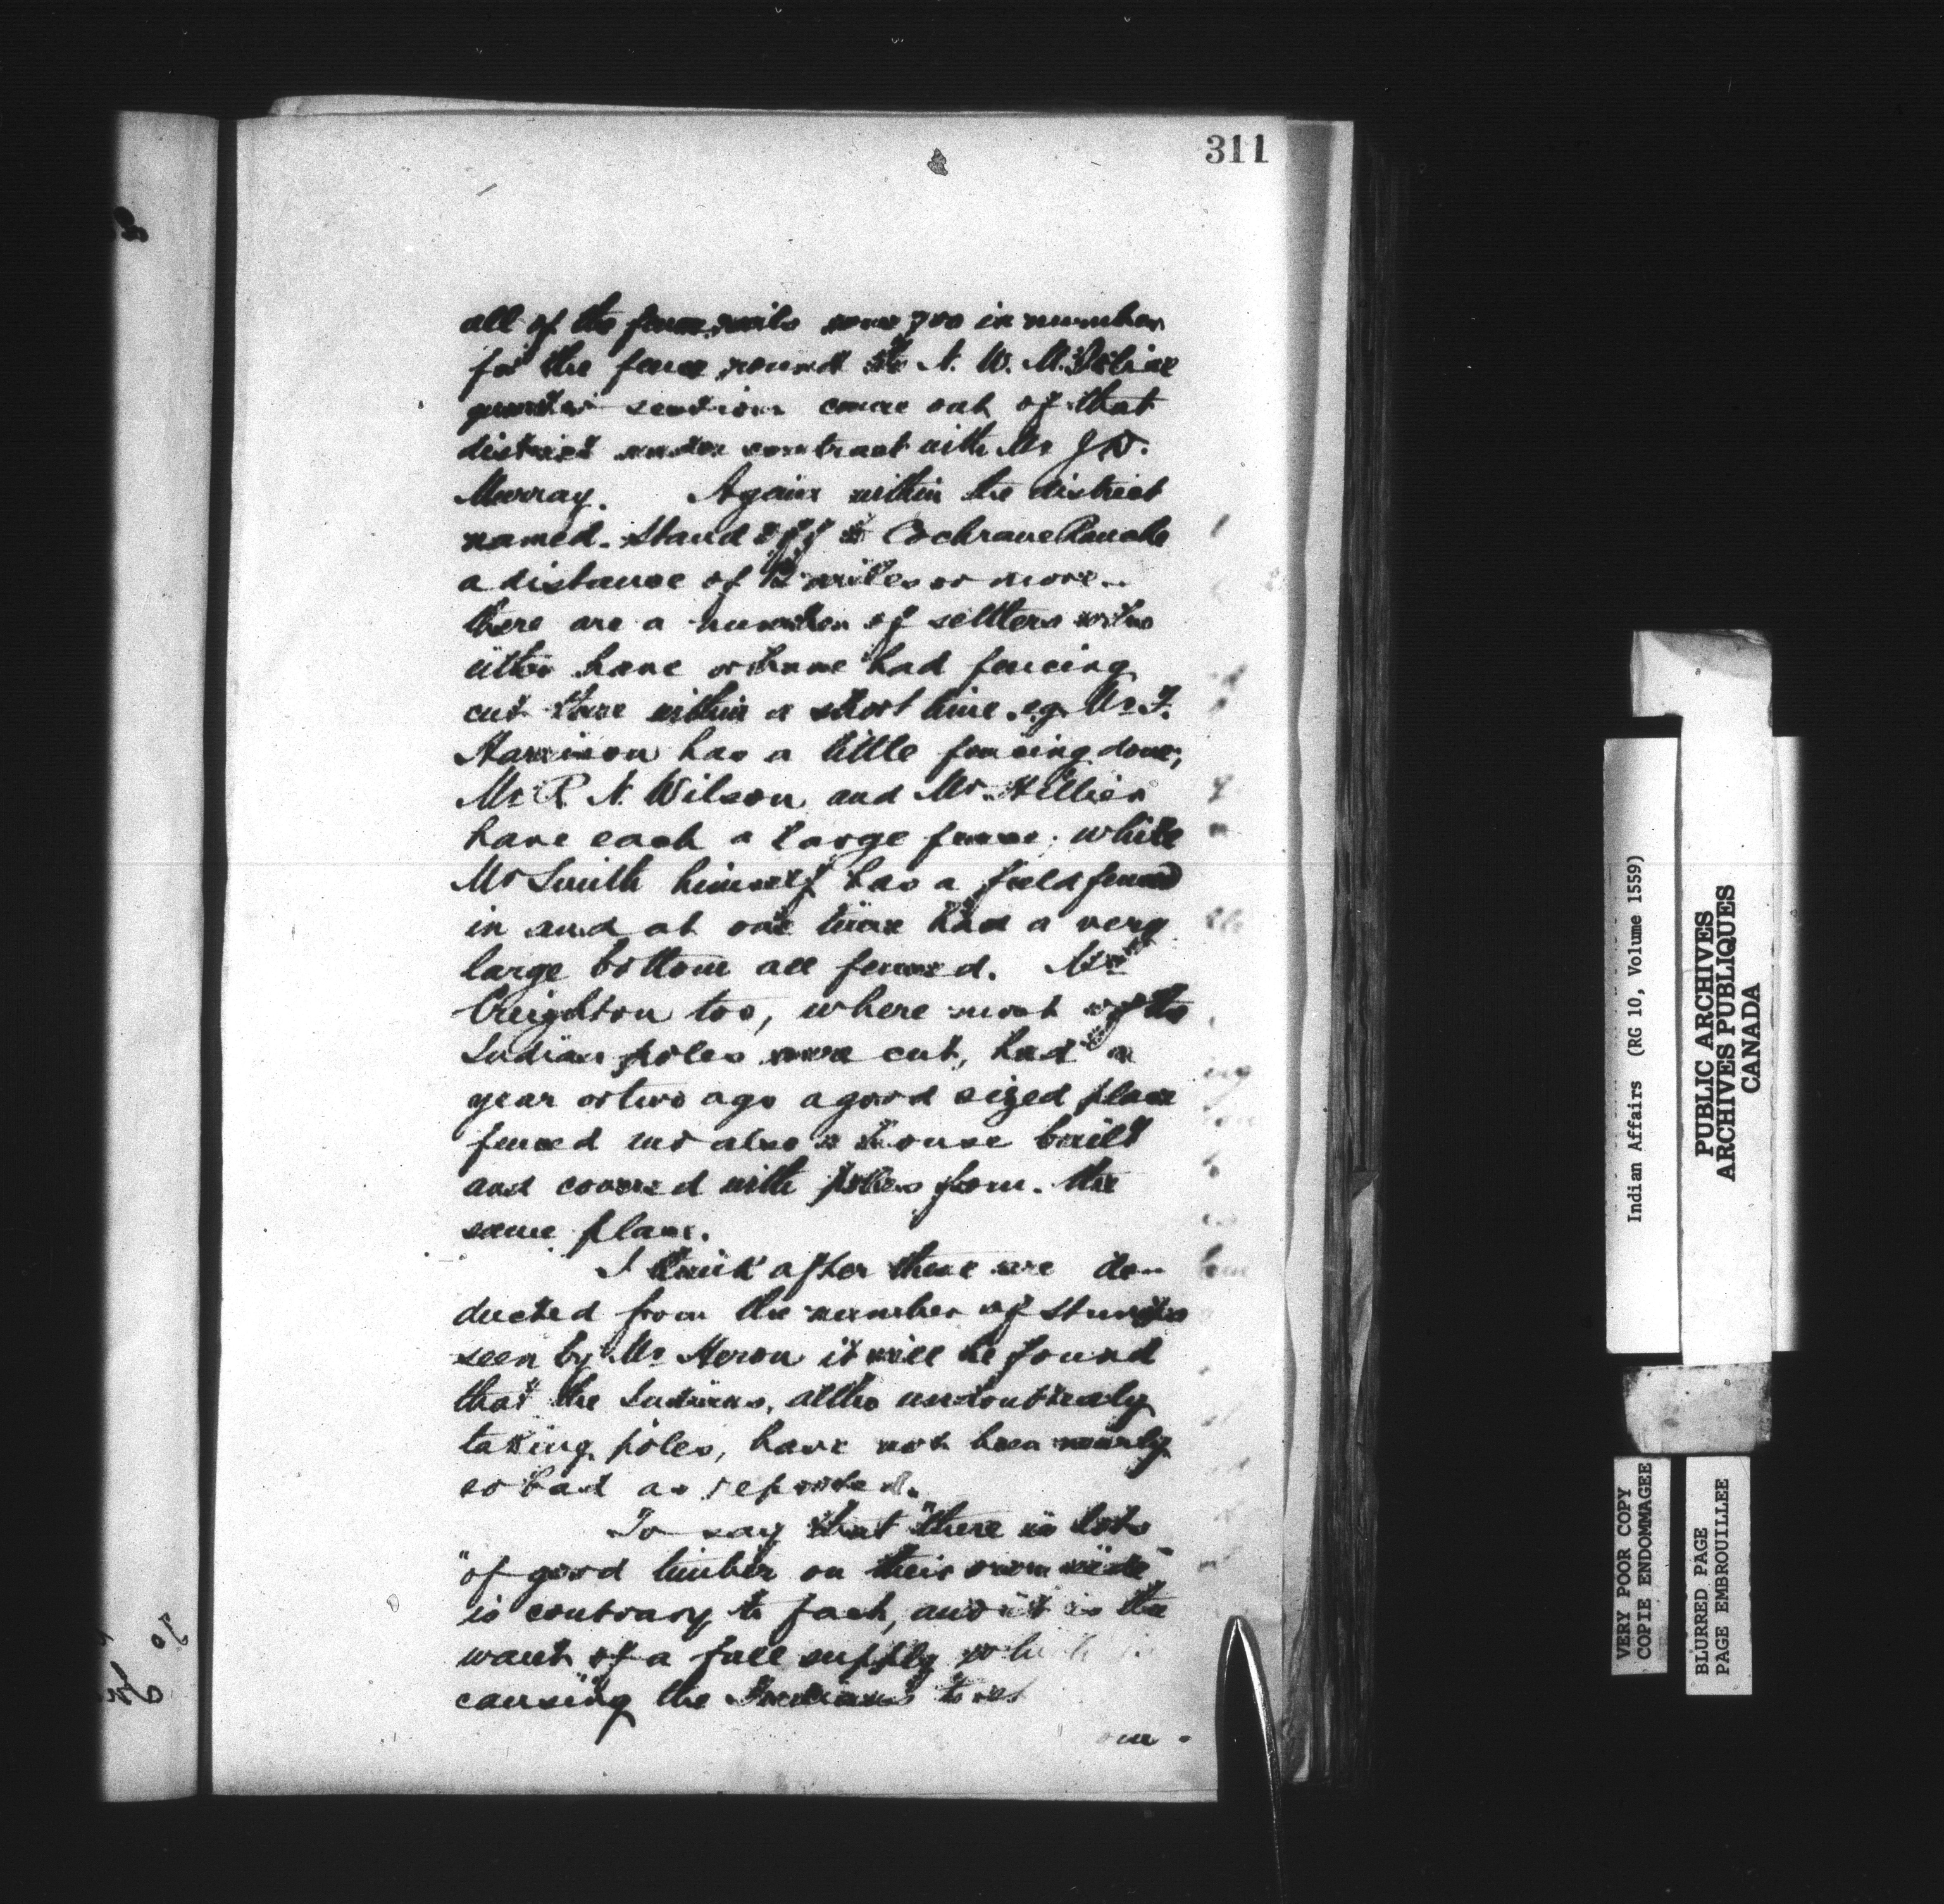 311
all of the fence rails over 700 in number
for the fence round the N. W. M. Police
quarter section came out of that
district under contract with Mr J D.
Murray. Again within the district
named. Stand Off to Cochrane Ranche
a distance of 12 miles or more
there are a number of settlers who
either have or have had fencing
cut there within a short time. eg. Mr F.
Harrison has a little fencing done,
Mr R. N. Wilson and Mr. Hillier
have each a large fence, while
Mr Smith himself has a field fenced
in and at one time had a very
large bottom all fenced. Mr
Creighton too, where most of the
Indian poles were cut, had a
year or two ago a good sized place
fenced and also a house built
and covered with poles from the
same place.
I think after these are de-
ducted from the number of stumps
seen by Mr Heron it will be found
that the Indians, altho undoubtedly
taking poles, have not been nearly
so bad as reported.
To say that "there is lots
"of good timber on their own side"
is contrary to fact, and it is the
want of a full supply which is
causing the Indians to cut
our
Indian Affairs (RG 10, Volume 1559)
PUBLIC ARCHIVES
ARCHIVES PUBLIQUES
CANADA
VERY POOR COPY
COPIE ENDOMMAGEE
BLURRED PAGE
PAGE EMBROUILLEE